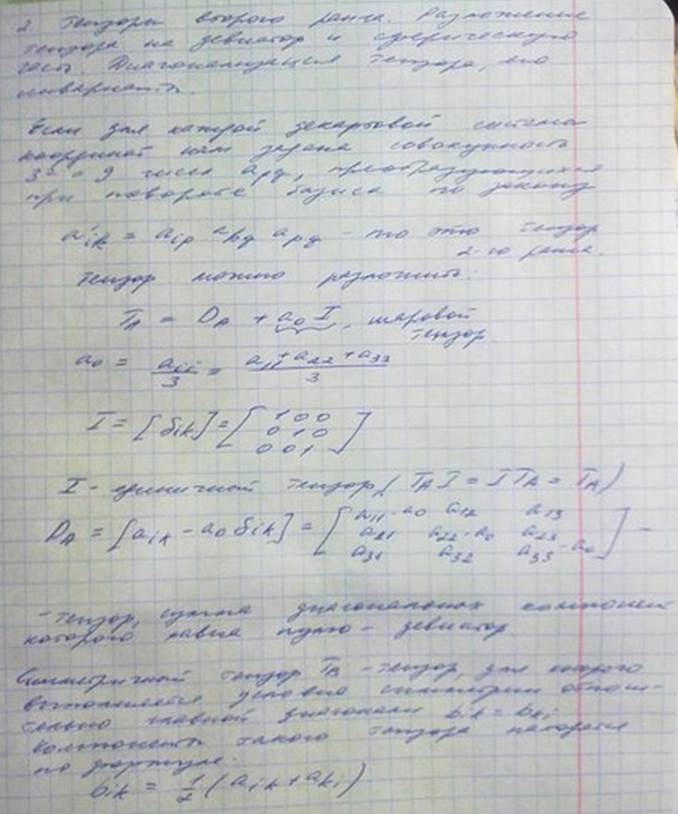 2. Тензоры второго ранга. Разложение
тензора на девиатор и сферическую
часть. Диагонализация тензора, его
инварианты.
Если для каждой декартовой системы
координат нам задана совокупность
3² = 9 чисел apq, преобразующихся
при повороте базиса по закону
a'ik = αip αkq apq - то это тензор
2-го ранга.
Тензор можно разложить:
TA = DA + a0 I, шаровой
тензор
a0 = aii/3 = (a11 + a22 + a33)/3
I = [δik] = [1 0 0
0 1 0
0 0 1]
I - единичный тензор (TA I = I TA = TA)
DA = [aik - a0 δik] = [a11 - a0 a12 a13
a21 a22 - a0 a23
a31 a32 a33 - a0] -
- тензор, сумма диагональных компонент
которого равна нулю - девиатор
Симметричный тензор TB - тензор, для которого
выполняется условие симметрии относи-
тельно главной диагонали bik = bki
компоненты такого тензора находятся
по формуле:
bik = 1/2 (aik + aki)